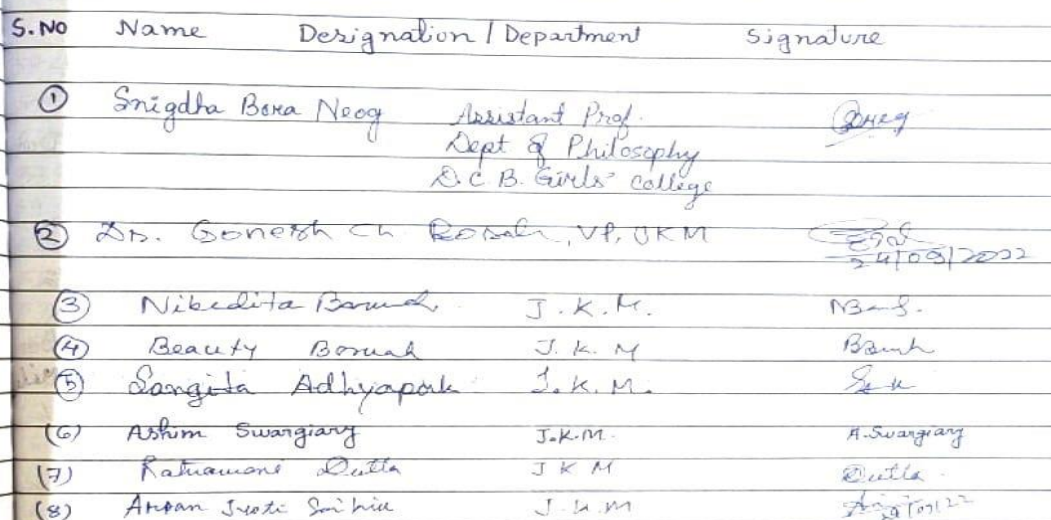 S.NO Name Designation / Department Signature
① Snigdha Bora Neog Assistant Prof.
Dept of Philosophy
D.C.B. Girls' college
② Dr. Gonesh Ch , VP, JKM
24/09/2022
③ Nibedita Baruah J.K.M.
④ Beauty Boruah J.K.M
⑤ Sangita Adhyapok J.K.M.
(6) Ashim Swargiary J.K.M. A.Swargiary
(7) Ratnamoni Dutta JKM Dutta
(8) Jyoti J.K.M